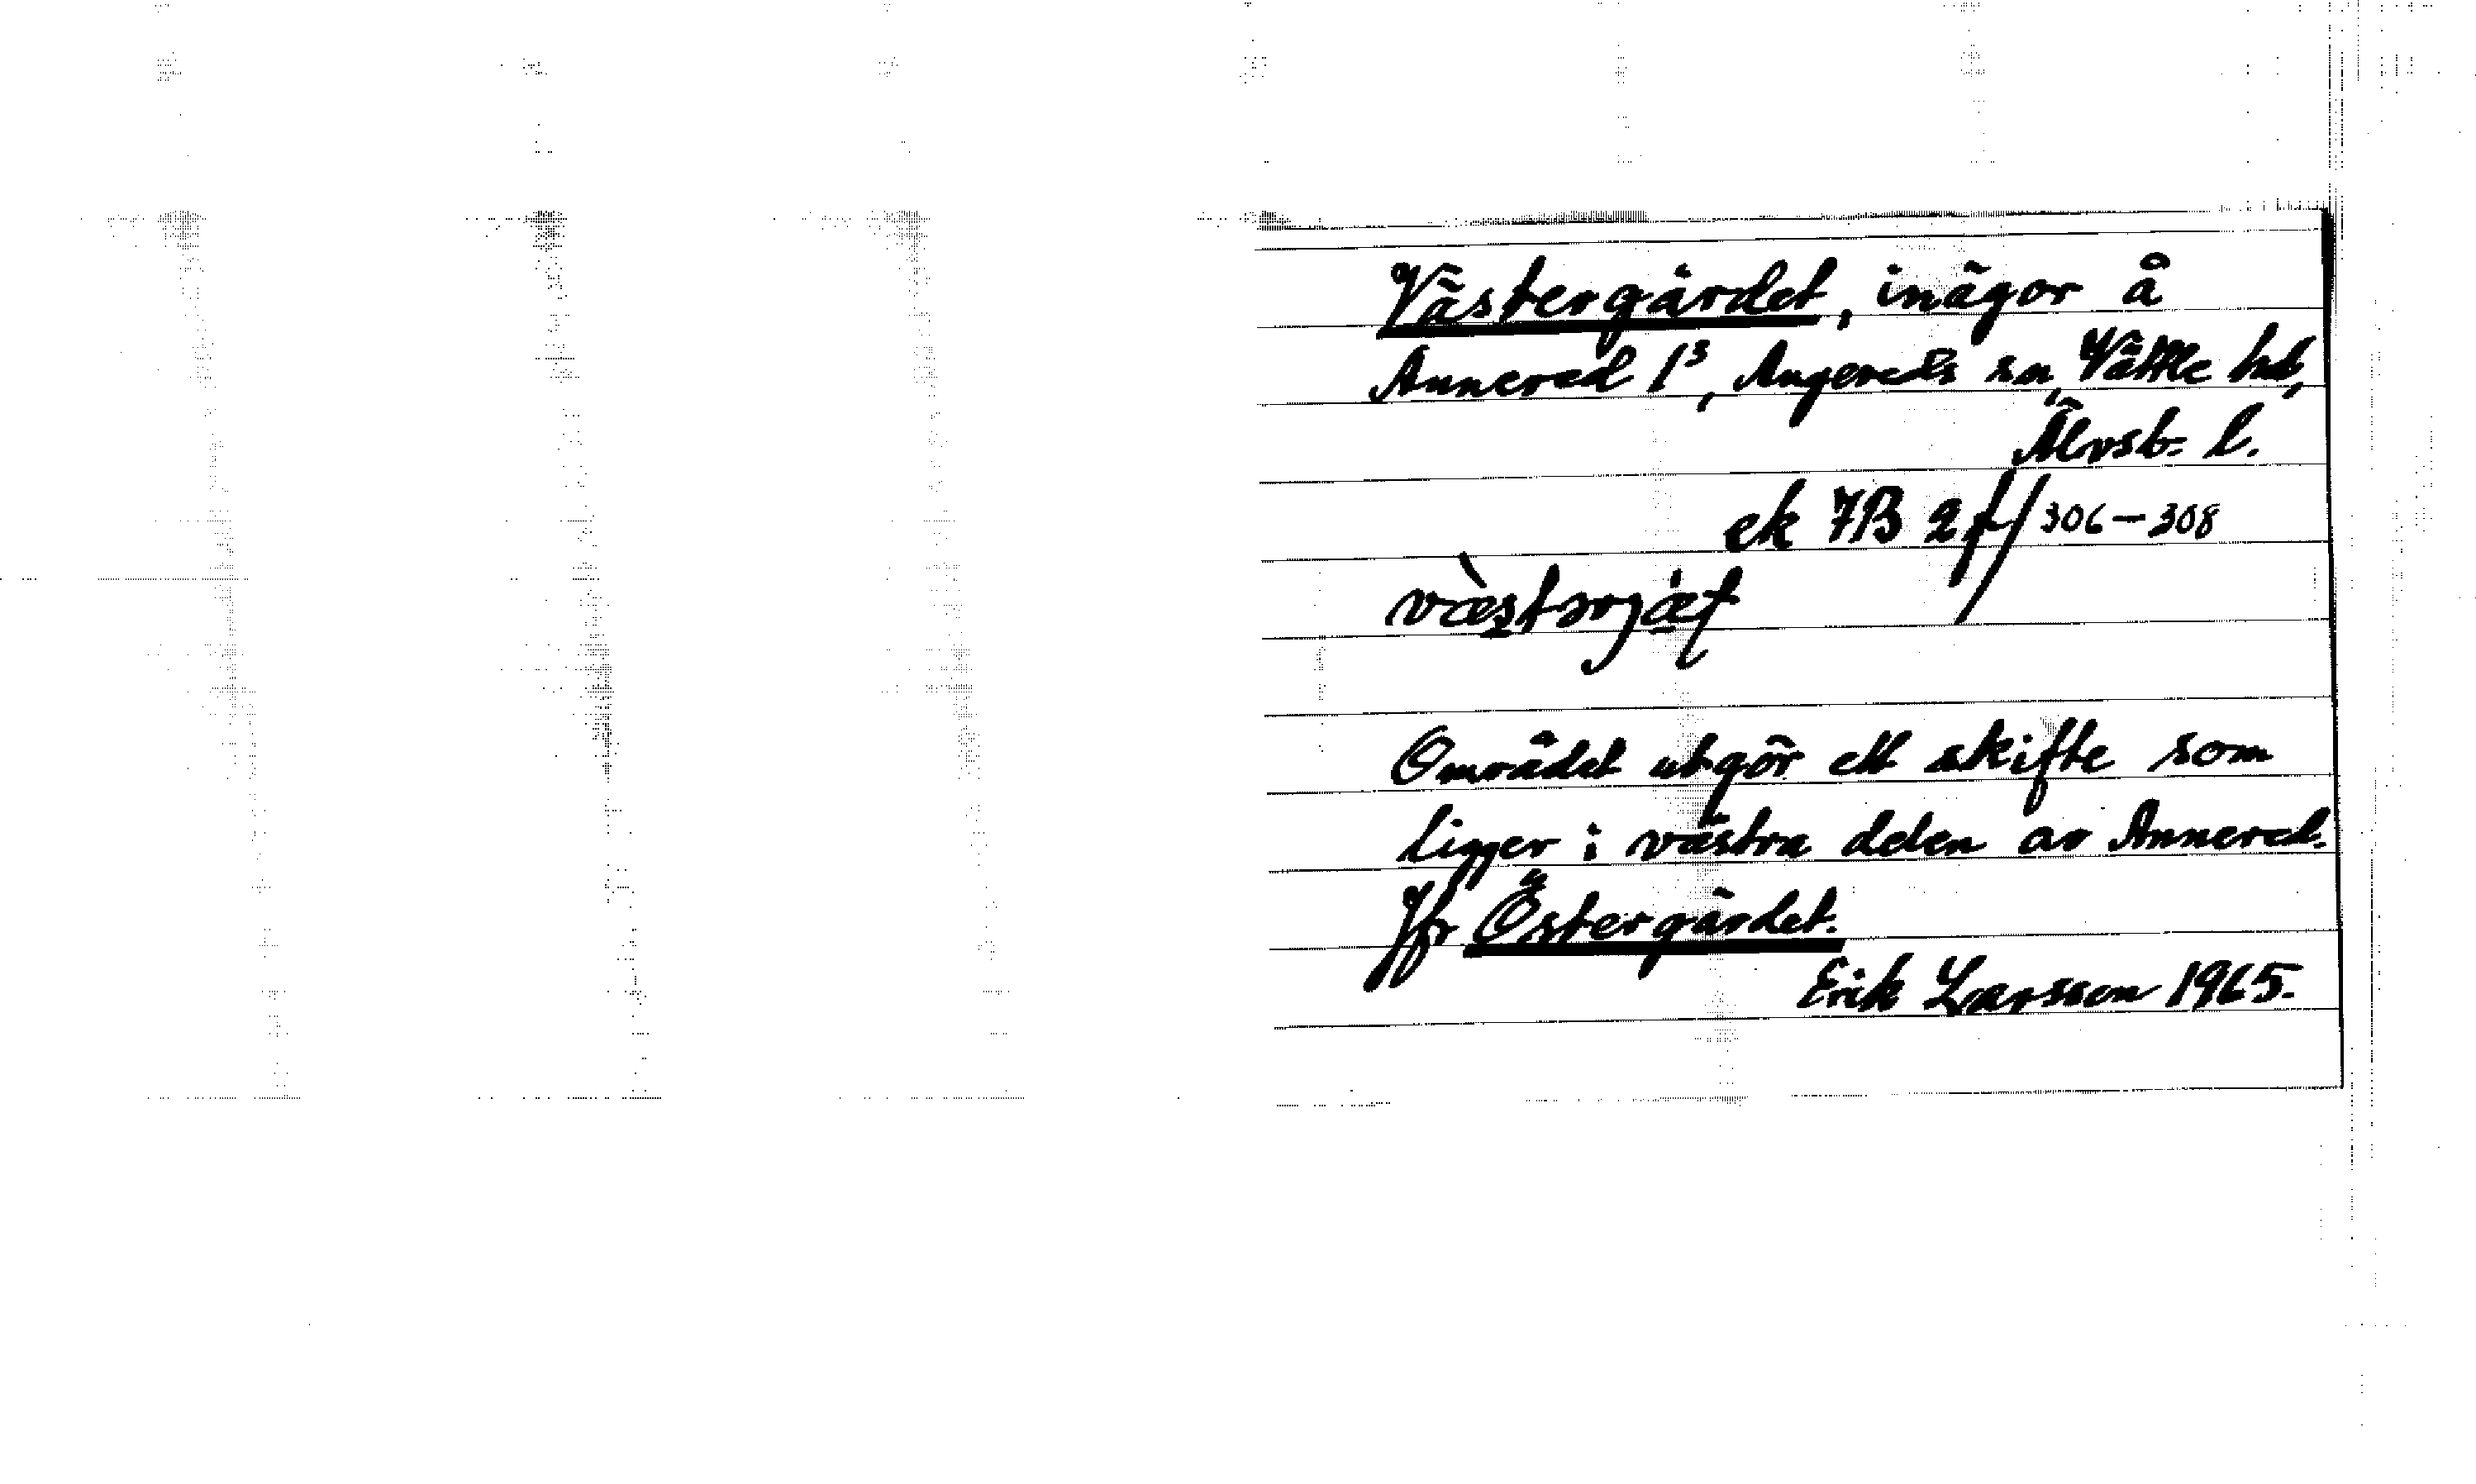 Västergärdet, inägor å
Annered 1³, Angereds sn, Vättle hd,
Älvsb. l.
ek 7B 2f/306-308
Området utgör ett skifte som
ligger i västra delen av Annered.
Jfr Östergärdet.
Erik Larsson 1965.